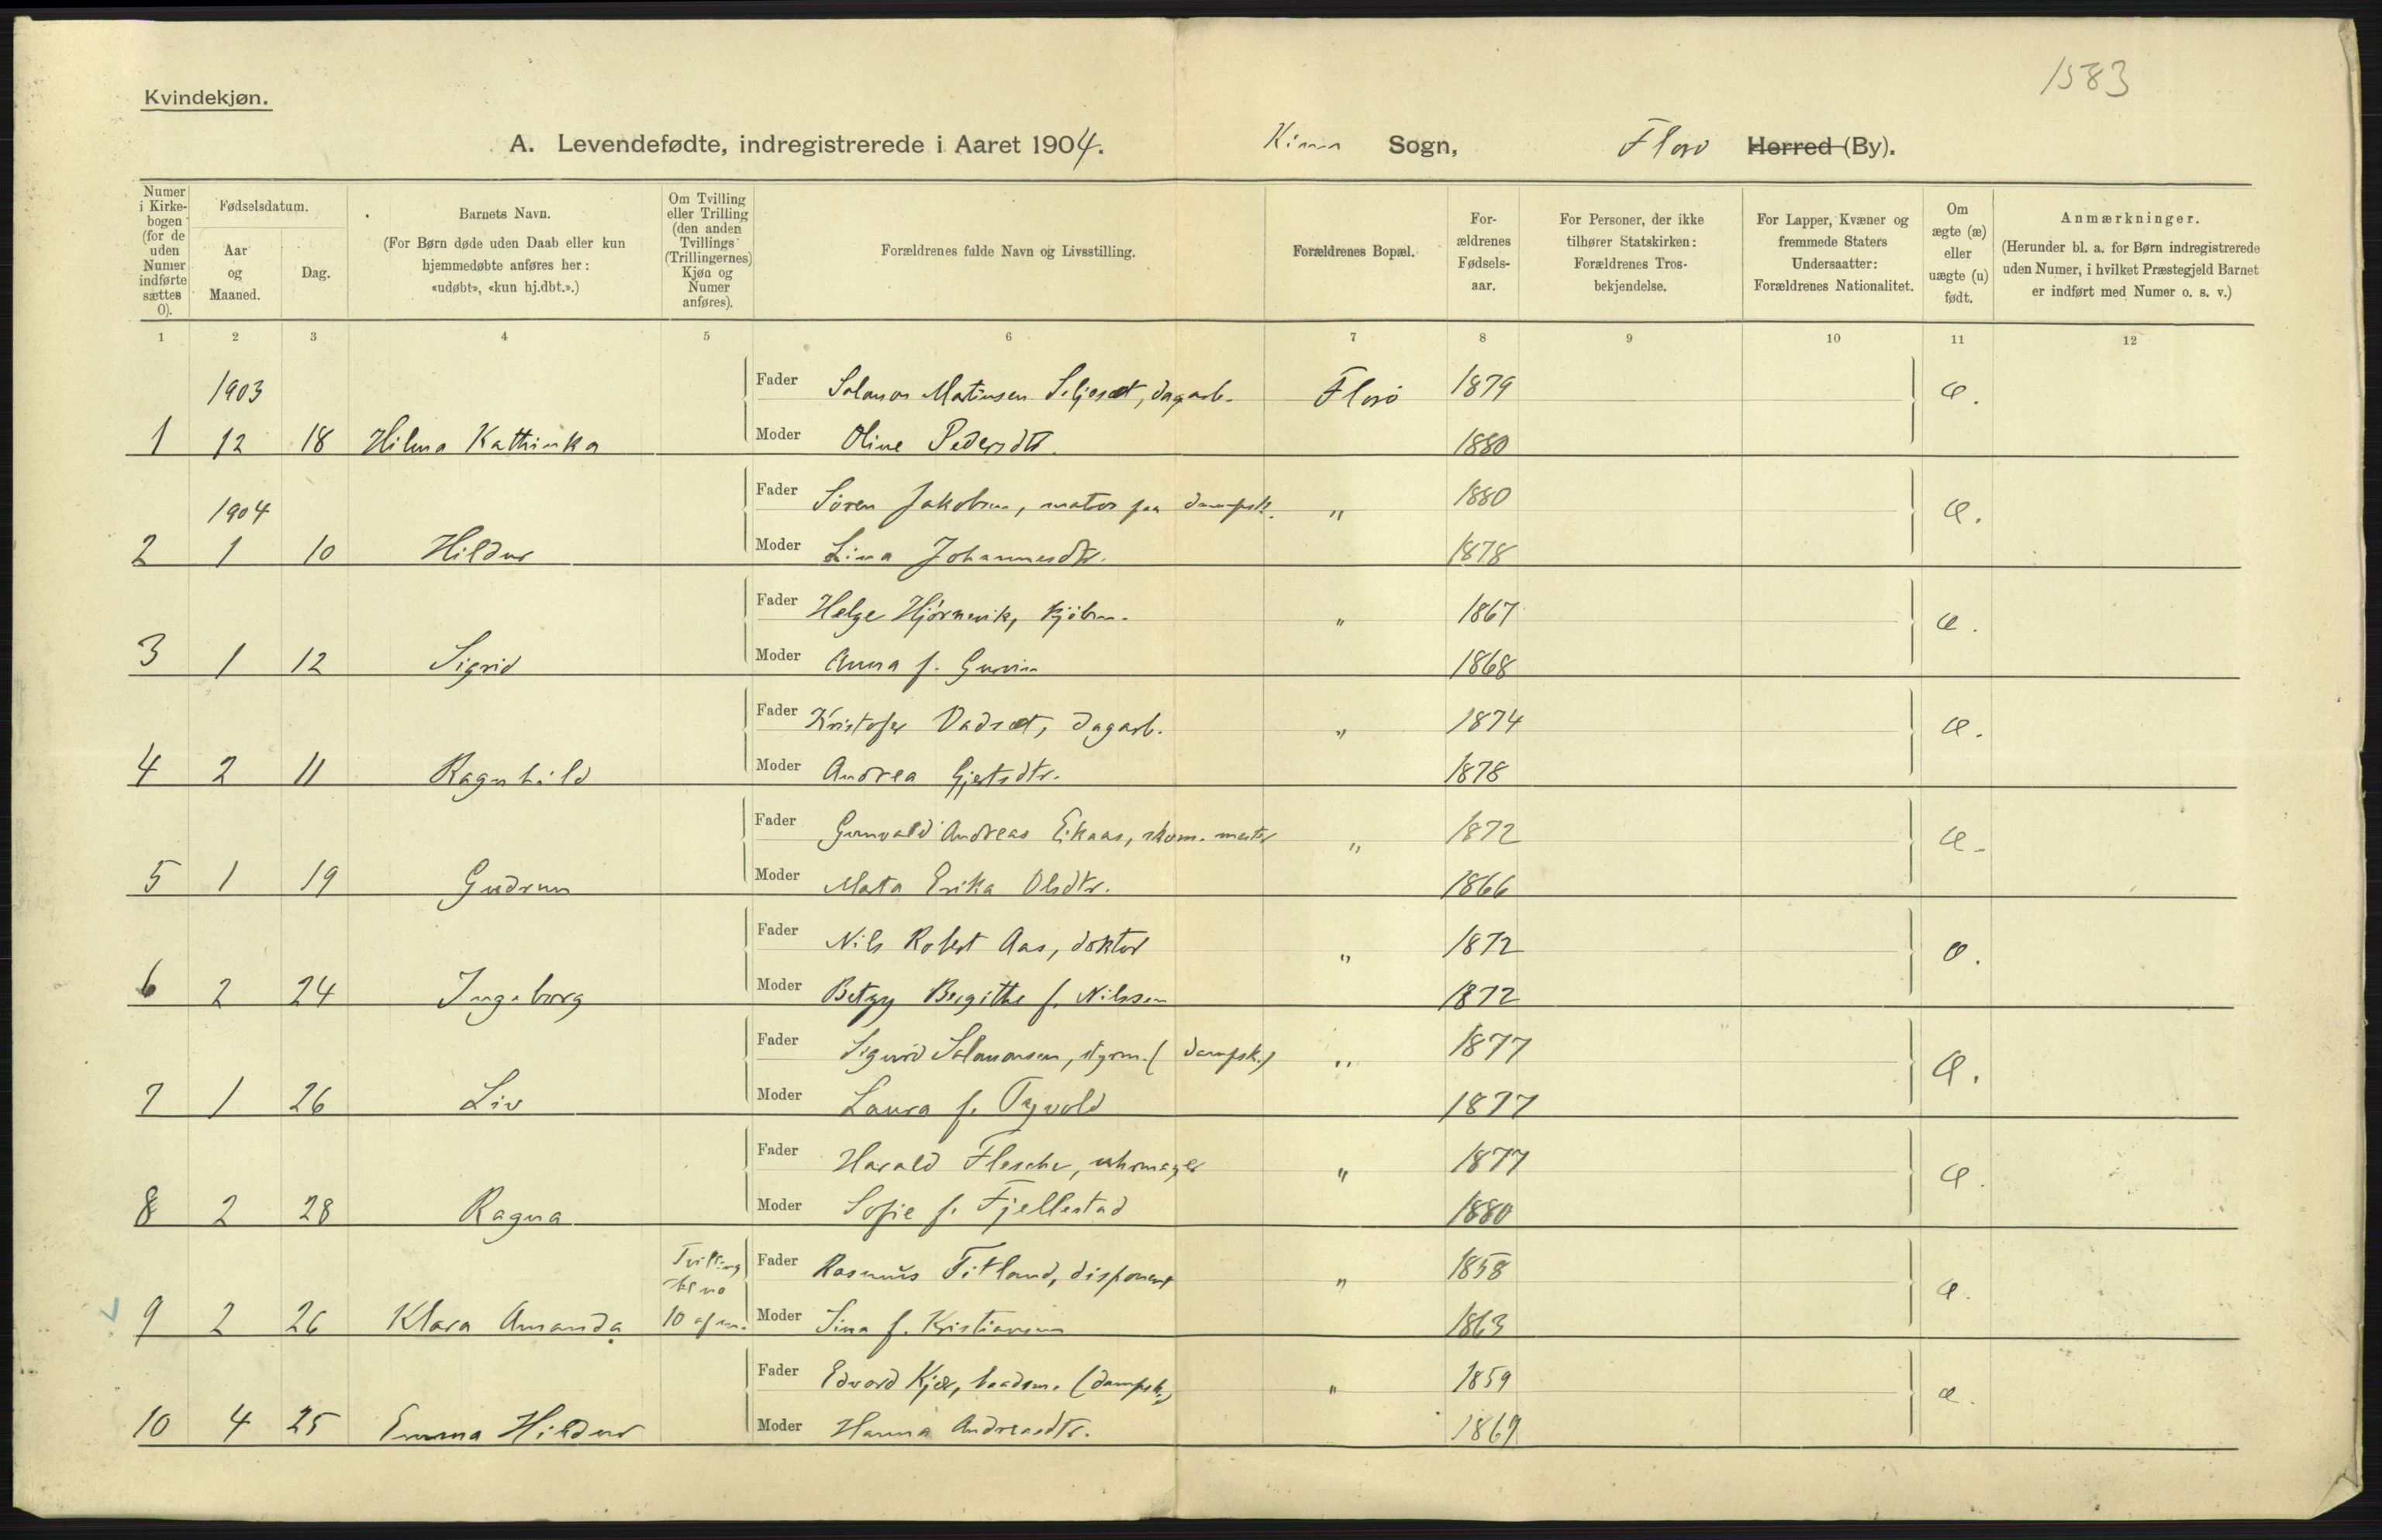 1583
Kvindekjøn.
A. Levendefødte, indregistrerede i Aaret 1904. Kinn Sogn, Florø Herred (By).
Numer i Kirkebogen (for de uden Numer indførte sættes 0).
Fødselsdatum.
Aar og Maaned.
Dag.
Barnets Navn.
(For Børn døde uden Daab eller kun hjemmedøbte anføres her: «udøbt», «kun hj.dbt.».)
Om Tvilling eller Trilling (den anden Tvillings (Trillingernes) Kjøn og Numer anføres).
Forældrenes fulde Navn og Livsstilling.
Forældrenes Bopæl.
Forældrenes Fødselsaar.
For Personer, der ikke tilhører Statskirken: Forældrenes Trosbekjendelse.
For Lapper, Kvæner og fremmede Staters Undersaatter: Forældrenes Nationalitet.
Om ægte (æ) eller uægte (u) født.
Anmærkninger.
(Herunder bl. a. for Børn indregistrerede uden Numer, i hvilket Præstegjeld Barnet er indført med Numer o. s. v.)
1 2 3 4 5 6 7 8 9 10 11 12
1903 Fader Salamon Matiasen Seljeset, dagarb. Florø 1879 æ.
1 12 18 Hilma Kathinka Moder Oline Pedersdtr. 1880
1904 Fader Søren Jakobsen, matros paa dampsk. " 1880 æ.
2 1 10 Hildur Moder Lina Johannesdtr. 1878
Fader Helge Hjørnevik, kjøbm. " 1867 æ.
3 1 12 Sigrid Moder Anna f. 1868
Fader Kristofer Vadset, dagarb. " 1874 æ.
4 2 11 Ragnhild Moder Andrea Gjertsdtr. 1878
Fader Gunvald Andreas Eikaas, skom.mester " 1872 æ.
5 1 19 Gudrun Moder Marta Erika Olsdtr. 1866
Fader Nils Robert Aas, doktor " 1872 æ.
6 2 24 Ingeborg Moder Betzy Bergithe f. Nilssen 1872
Fader Sigurd Salamonsen, styrm. (dampsk.) " 1877 æ.
7 1 26 Liv Moder Laura f. Tyvold 1877
Fader Harald Flesche, uhrmager " 1877 æ.
8 2 28 Ragna Moder Sofie f. Fjellestad 1880
Tvilling Fader Rasmus Titland, disponent " 1858 æ.
9 2 26 Klara Amanda 10 Moder Sina f. Kristiansen 1863
Fader Edvard Kjær, baadsm. (dampsk.) " 1859 æ.
10 4 25 Emma Hildur Moder Hanna Andreasdtr. 1869